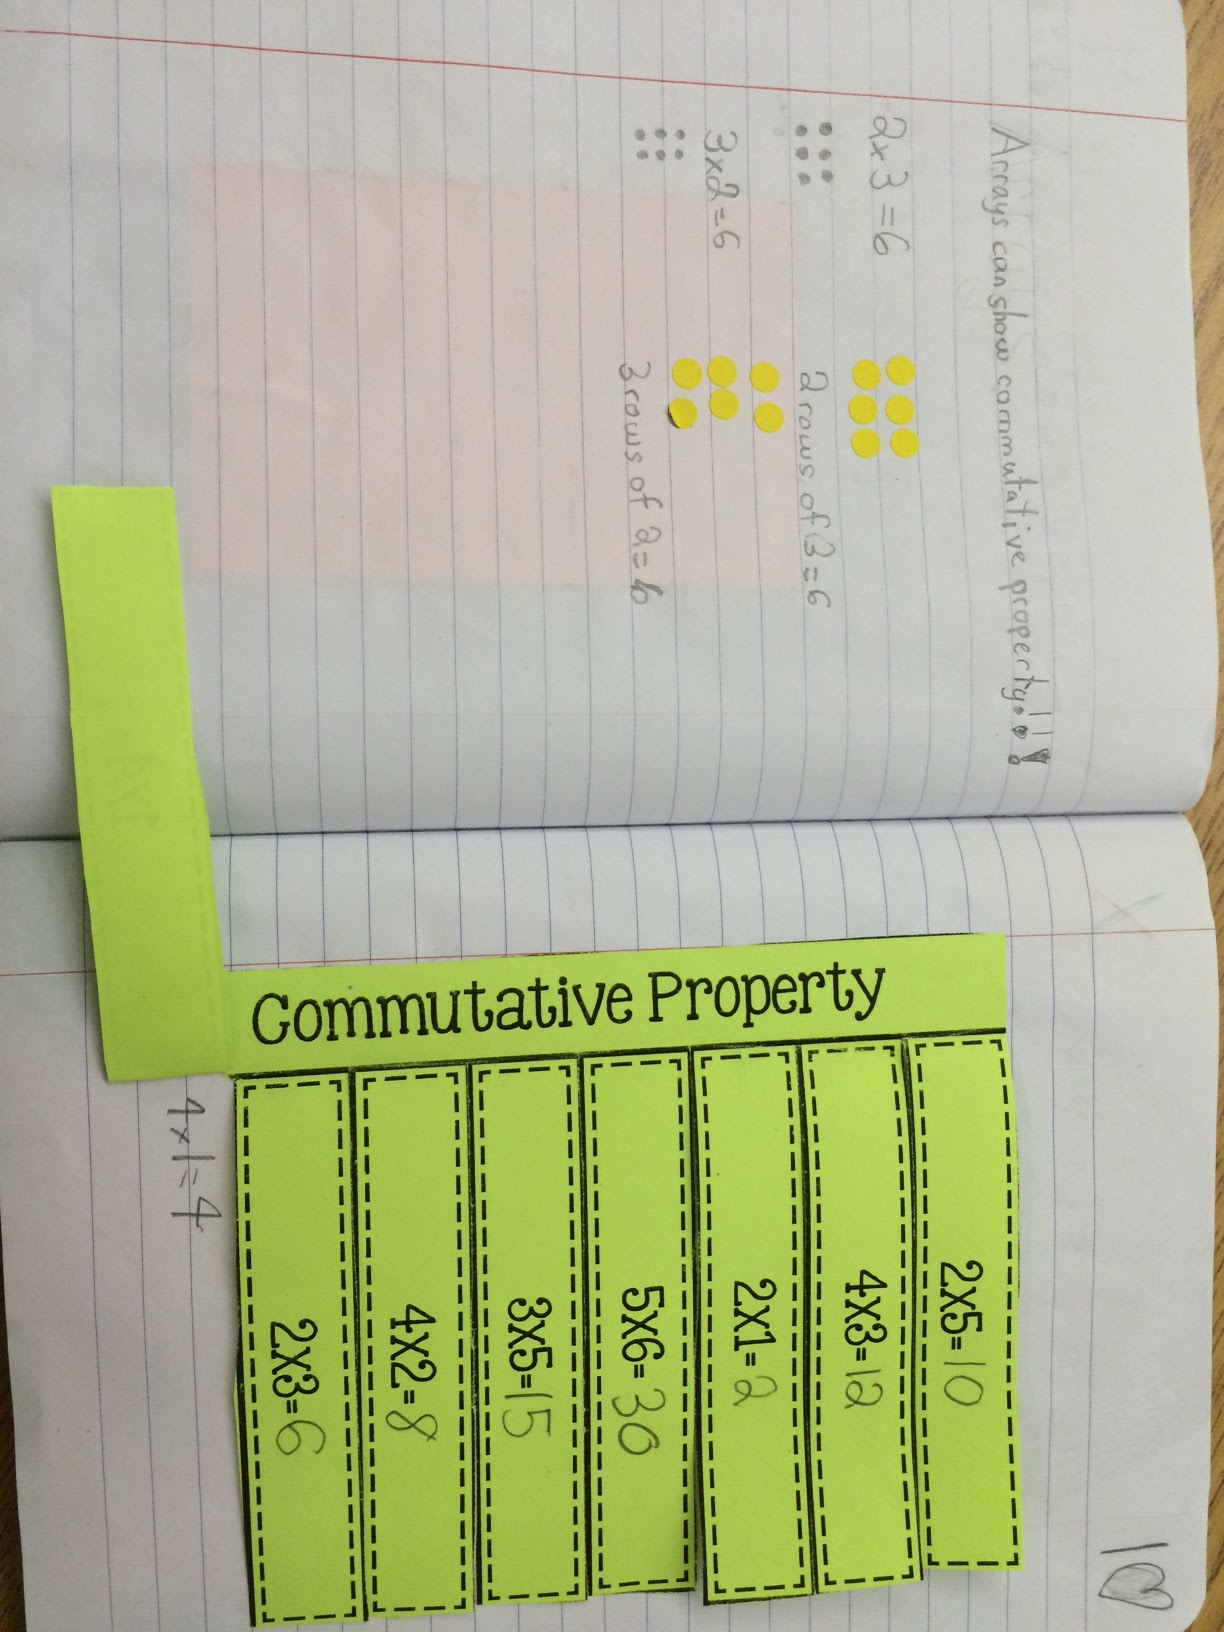 Arrays can show commutative property!!!
2x3=6
2 rows of 3=6
3x2=6
3 rows of 2=6
10
Commutative Property
2x5=10
4x3=12
2x1=2
5x6=30
3x5=15
4x2=8
2x3=6
4x1=4